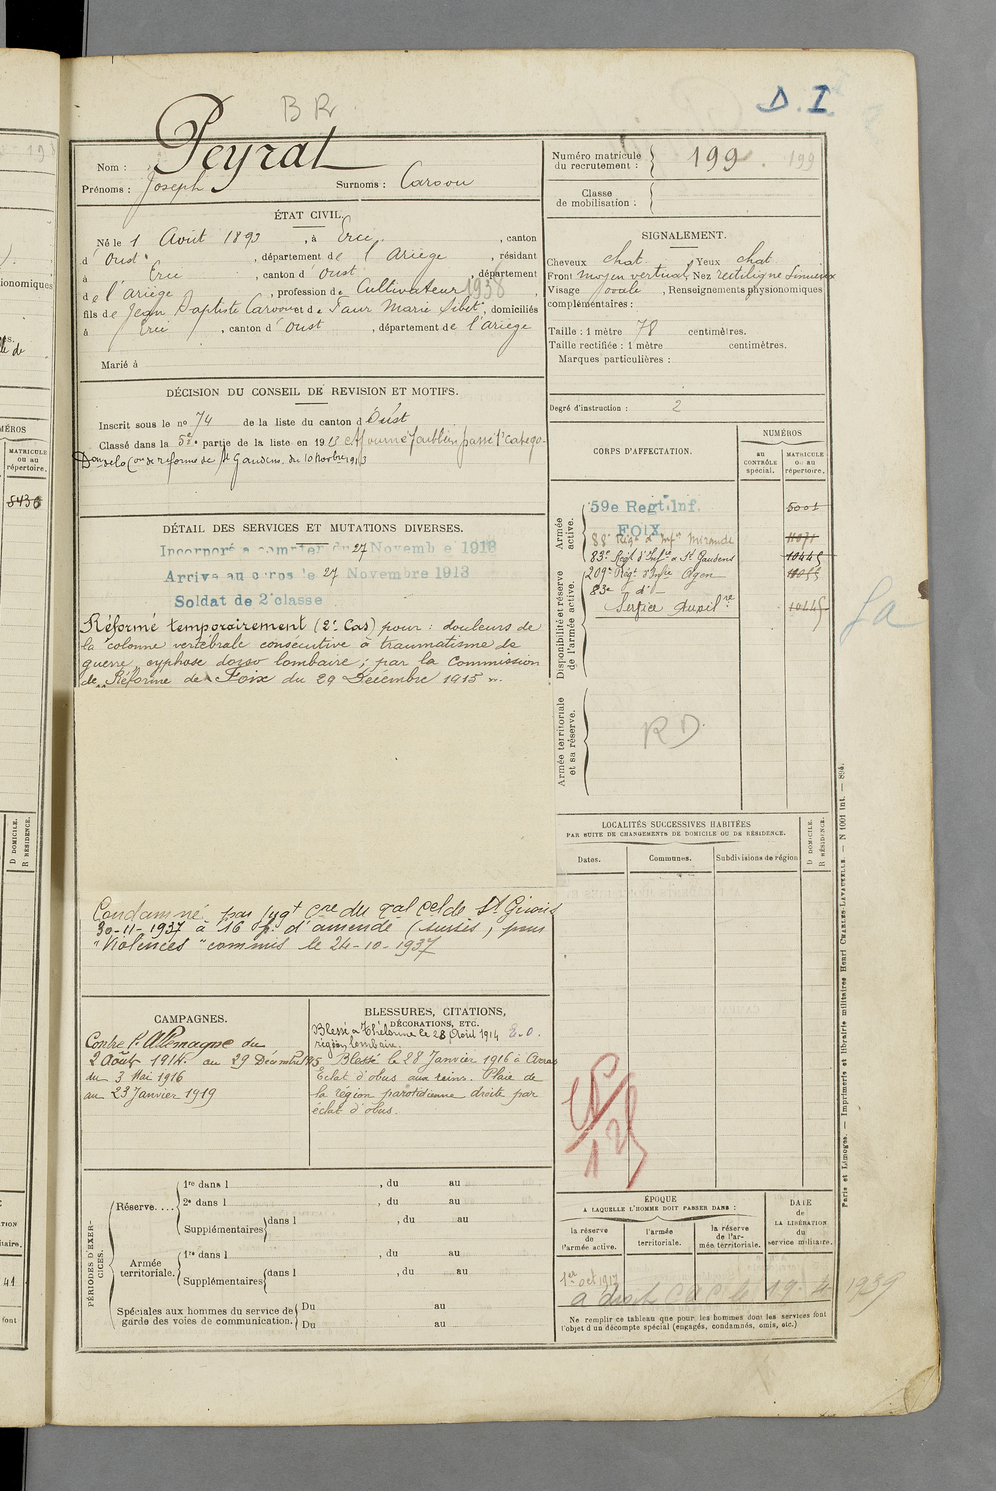 BR
D. I.
Nom : Peyrat
Prénoms : Joseph Surnoms : Carsou
Numéro matricule du recrutement : 199. 199
Classe de mobilisation :
ÉTAT CIVIL.
Né le 1 Août 1893, à Ercé, canton
d'Oust, département de l'Ariège, résidant
à Ercé, canton d'Oust, département
de l'Ariège, profession de Cultivateur 1938
fils de Jean Baptiste Carsou et de Faur Marie, domiciliés
à Ercé, canton d'Oust, département de l'Ariège
Marié à
SIGNALEMENT.
Cheveux chat. Yeux chat
Front moyen vertical, Nez rectiligne Sinueux
Visage ovale, Renseignements physionomiques
complémentaires :
Taille : 1 mètre 78 centimètres.
Taille rectifiée : 1 mètre centimètres.
Marques particulières :
Degré d'instruction : 2
DÉCISION DU CONSEIL DE REVISION ET MOTIFS.
Inscrit sous le no 74 de la liste du canton d'Oust
Classé dans la 5e partie de la liste en 1913 Ajourné faiblesse passé 1e catégo-
Don de la Con de réforme de St Gaudens, du 10 Novbre 1913
CORPS D'AFFECTATION.
NUMÉROS
au CONTRÔLE spécial.
MATRICULE ou au répertoire.
Armée active.
59e Regt. Inf. 5001
FOIX
88e Régt d'Infie Mirande
83e Régt d'Infie à St Gaudens 10445
Disponibilité et réserve de l'armée active.
209e Régt d'Infie Agen
83e d°
Service Auxilre 10445
Sa
Armée territoriale et sa réserve.
RD.
DÉTAIL DES SERVICES ET MUTATIONS DIVERSES.
Incorporé a compter du 27 Novembre 1913
Arrive au corps le 27 Novembre 1913
Soldat de 2e classe
Réformé temporairement (2e Cas) pour : douleurs de
la colonne vertébrale consécutive à traumatisme de
guerre, cyphose dorso lombaire ; par la Commission
de Réforme de Foix du 29 Décembre 1915.
Condamné par Jugt Cre du Tal Cel de St Girons
30-11-1937 à 16 f. d'amende (sursis) pour
"Violences" commis le 24-10-1937
LOCALITÉS SUCCESSIVES HABITÉES
PAR SUITE DE CHANGEMENTS DE DOMICILE OU DE RÉSIDENCE.
Dates. Communes. Subdivisions de région
D DOMICILE.
R RÉSIDENCE.
CAMPAGNES.
Contre l'Allemagne du
2 Août 1914 au 29 Décembre 1915
du 3 Mai 1916
au 23 Janvier 1919
BLESSURES, CITATIONS,
DÉCORATIONS, ETC.
Blessé à Thélonne le 28 Août 1914 E. O.
région lombaire.
Blessé le 28 Janvier 1916 à Arras
Eclat d'obus aux reins. Plaie de
la région parotidienne droite par
éclat d'obus.
PÉRIODES D'EXERCICES.
Réserve....
1re dans l , du au
2e dans l , du au
Supplémentaires dans l , du au
Armée territoriale.
1re dans l , du au
Supplémentaires dans l , du au
Spéciales aux hommes du service de garde des voies de communication.
Du au
Du au
ÉPOQUE
A LAQUELLE L'HOMME DOIT PASSER DANS :
la réserve de l'armée active.
l'armée territoriale.
la réserve de l'armée territoriale.
DATE de LA LIBÉRATION du service militaire.
1er oct 1917
a droit C A C le 19. 4. 1939
Ne remplir ce tableau que pour les hommes dont les services font
l'objet d'un décompte spécial (engagés, condamnés, omis, etc.)
Paris et Limoges. — Imprimerie et librairie militaires Henri CHARLES-LAVAUZELLE. — N 1001 Int. — 804.
MATRICULE ou au répertoire.
5436
D DOMICILE.
R RÉSIDENCE.
41